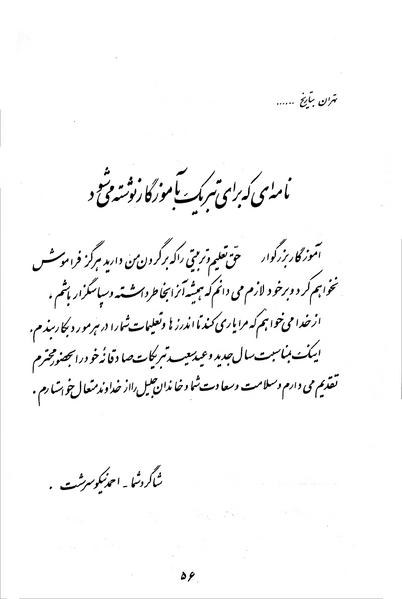 تهران بتاریخ ......
نامه‌ای که برای تبریک بآموزگار نوشته می‌شود
آموزگار بزرگوار حق تعلیم و تربیتی را که بر گردن من دارید هرگز فراموش
نخواهم کرد و بر خود لازم می دانم که همیشه آنرا بخاطر داشته و سپاسگزار باشم .
از خدا می خواهم که مرا یاری کند تا اندرزها و تعلیمات شما را در هر مورد بکار بندم .
اینک بمناسبت سال جدید و عید سعید تبریکات صادقانه خود را بحضور محترم
تقدیم می دارم و سلامت و سعادت شما و خاندان جلیل را از خداوند متعال خواستارم .
شاگرد شما - احمد نیکوسرشت .
۵۶